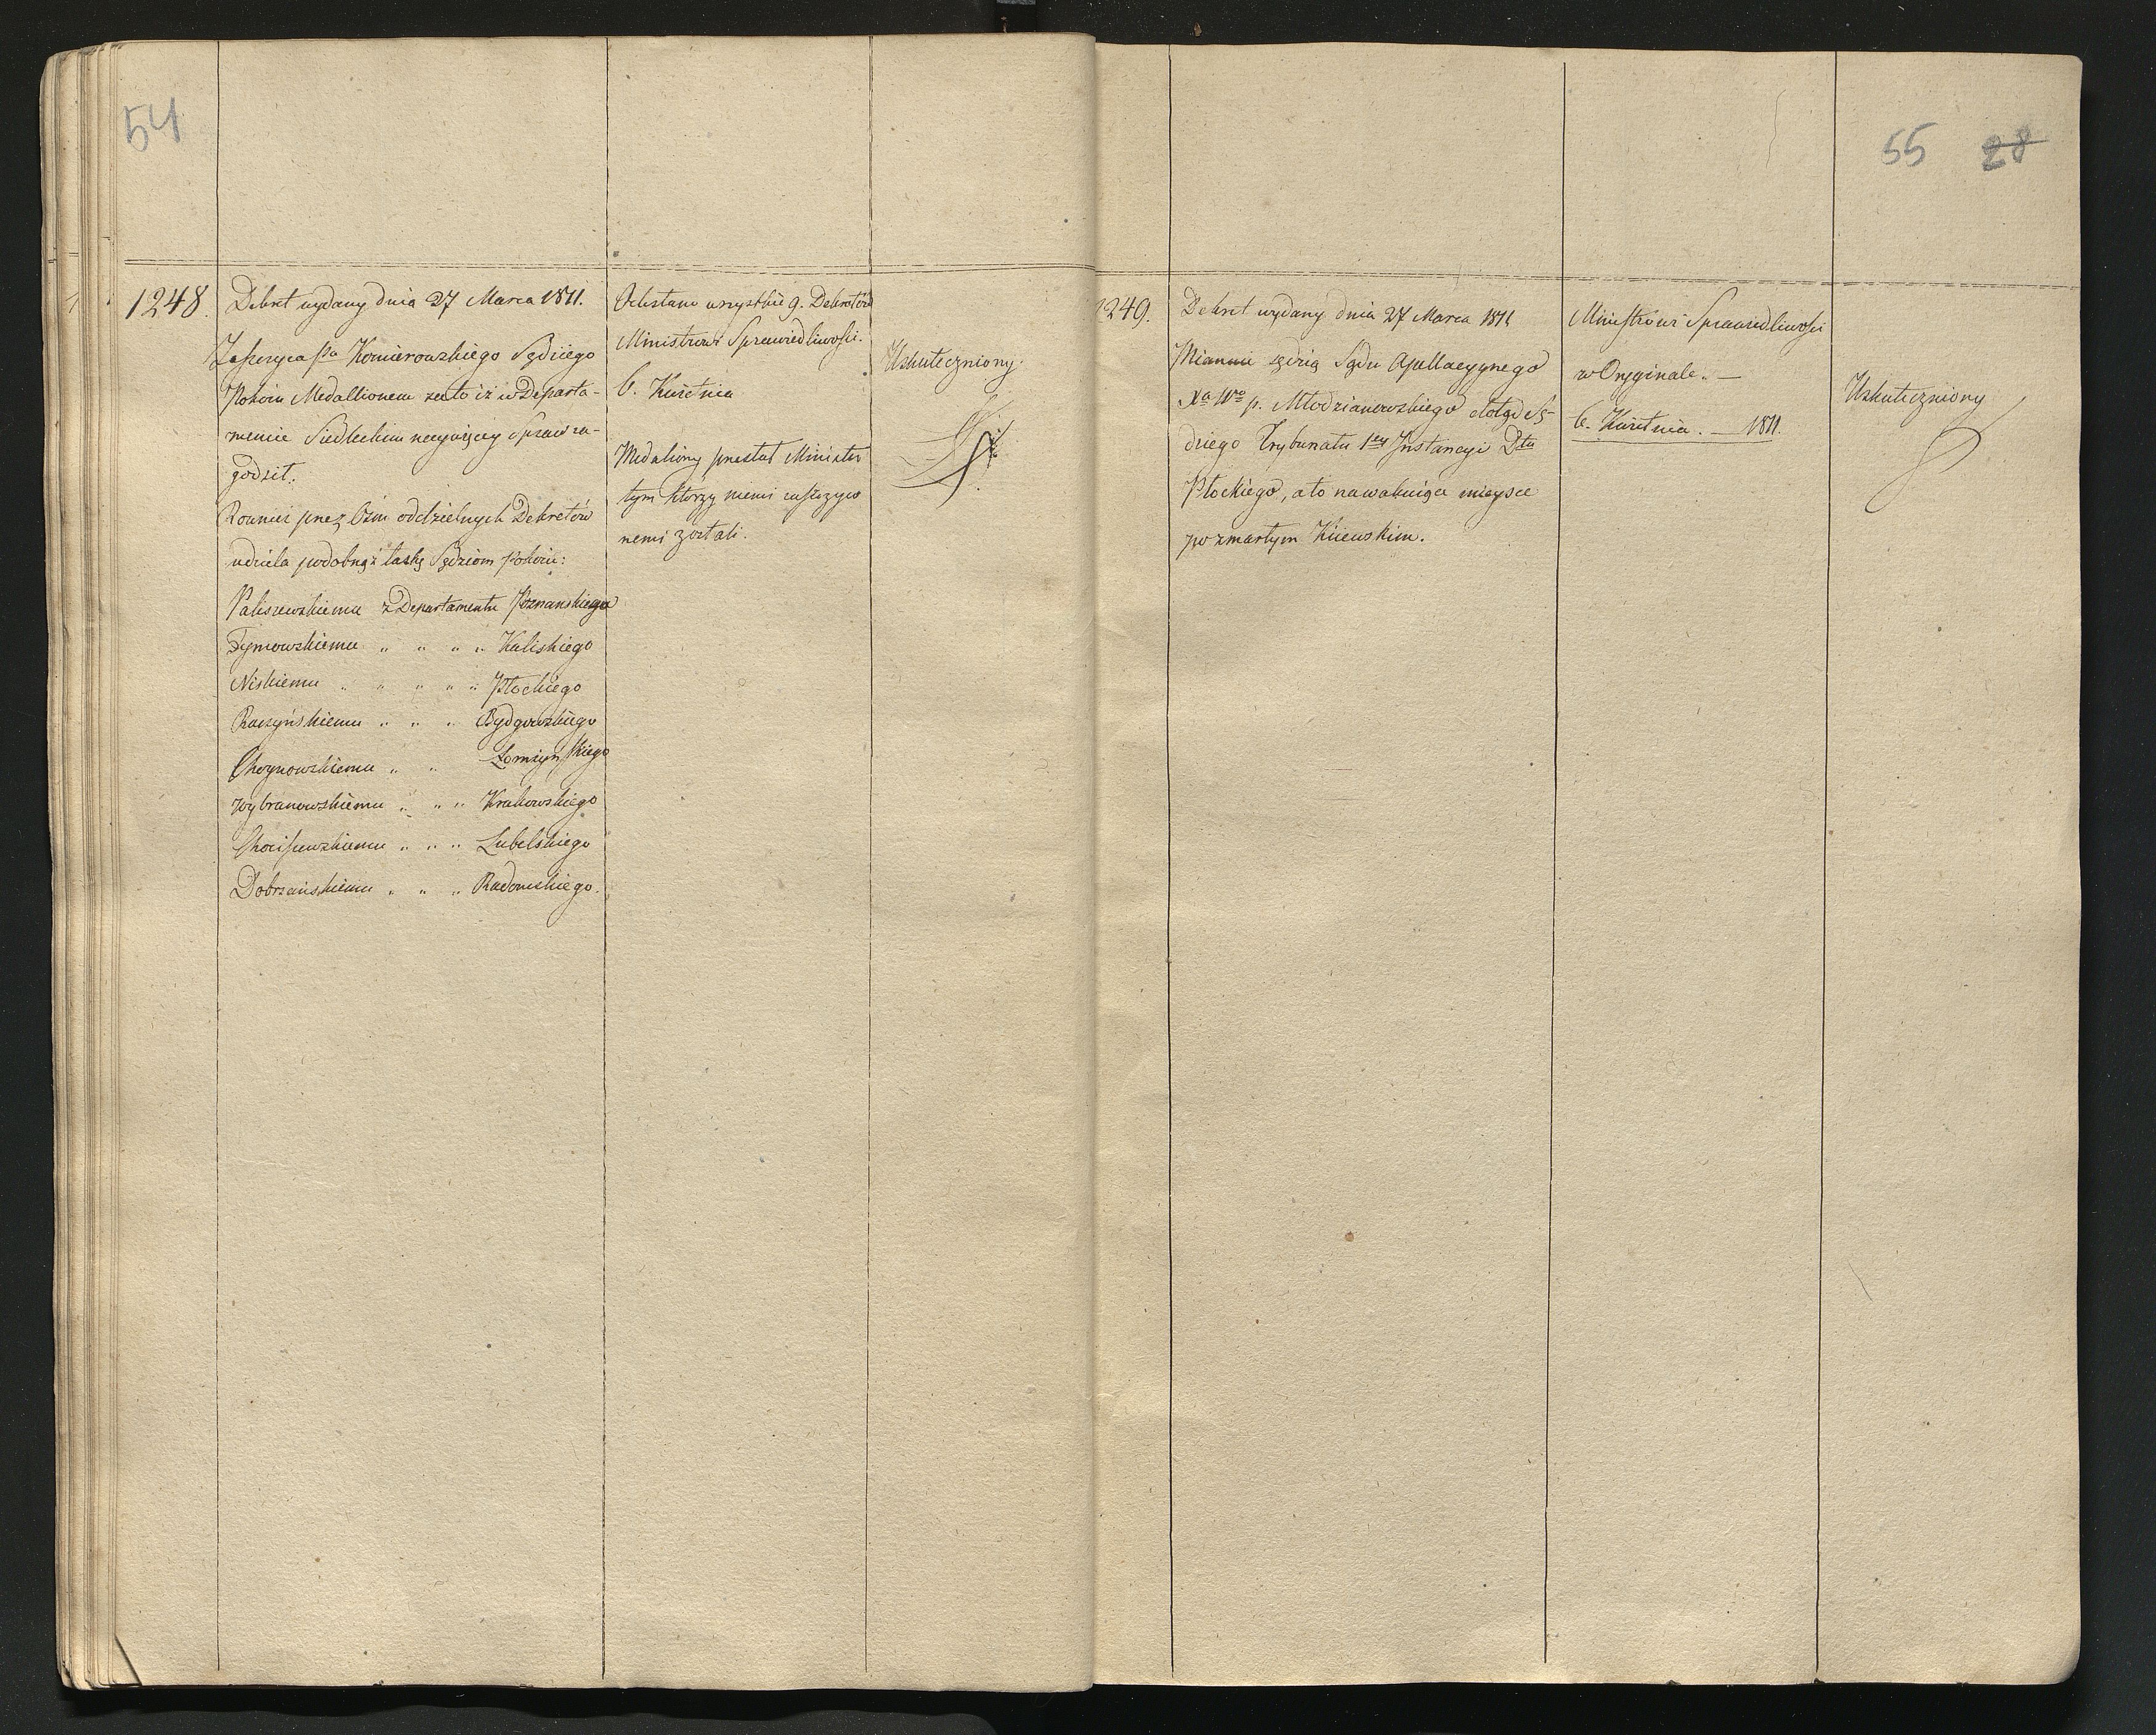 54
1248.
Dekret wydany dnia 27 Marca 1811.
Zaszczyca Pa Komierowskiego Sędziego
Pokoiu Medallionem za to iż w Departa-
mencie Siedleckim naywięcey Spraw za-
godził.
Rownież przez 8śm oddzielnych Dekretów
udziela podobnąż łaskę Sędziom Pokoiu:
Paliszewskiemu z Departamentu Poznanskiego
Tymowskiemu " " " " Kaliskiego
Niskiemu " " " " " Płockiego
Raczyńskiemu " " " Bydgowskiego
Choynowskiemu " " Łomżyńskiego
Wybranowskiemu " " " Krakowskiego
Chociszewskiemu " " " Lubelskiego
Dobrzańskiemu " " " Radomskiego.
Odesłano wszystkie 9. Dekretów
Ministrowi Sprawiedliwości.
6. Kwietnia
Medaliony przesłał Minister
tym którzy niemi zaszczyco
nemi zostali.
Uskuteczniony.
55 28
1249.
Dekret wydany dnia 27 Marca 1811
Mianuie sędzią Sądu Apellacyynego
Xa Wo p. Młodzianowskiego dotąd Sę-
dziego Trybunału 1ey Instancyi Dtu
Płockiego, a to na wakuiące mieysce
po zmarłym Kiiewskim.
Ministrowi Sprawiedliwości
w Oryginale. —
6. Kwietnia. — 1811.
Uskuteczniony